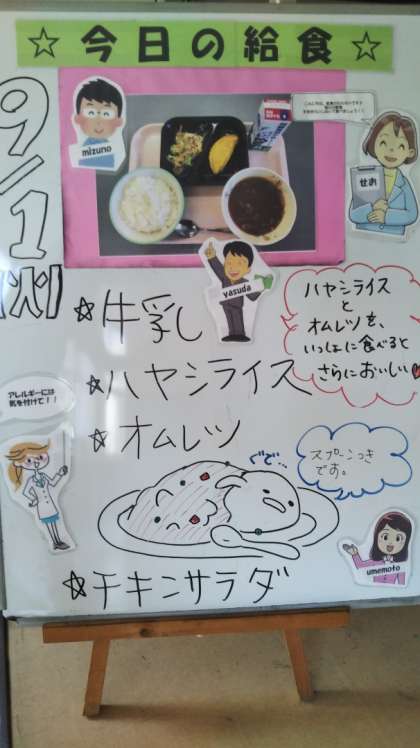 ☆今日の給食☆
9/1
(火)
mizuno
せお
yasuda
☆牛乳
☆ハヤシライス
☆オムレツ
ハヤシライス
と
オムレツを、
いっしょに食べると
さらにおいしい
アレルギーには
気を付けて!!
ぐで…
スプーンつき
です。
umemoto
☆チキンサラダ